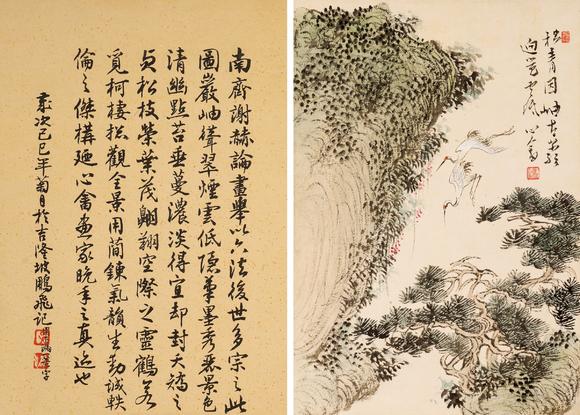 南齊謝赫論畫舉以六法後世多宗之此
圖巖岫聳翠煙雲低隱筆墨秀景色
清幽點苔垂蔓濃淡得宜却封夭矯之
貞松枝榮葉茂翱翔空際之靈鶴若
覓柯棲捴觀全景用簡鍊氣韻生動誠軼
倫之傑構廼心畬畫家晚年之真迹也
歲次己巳年菊月於吉隆坡鵬飛記
青因岫
迥雲低心畬